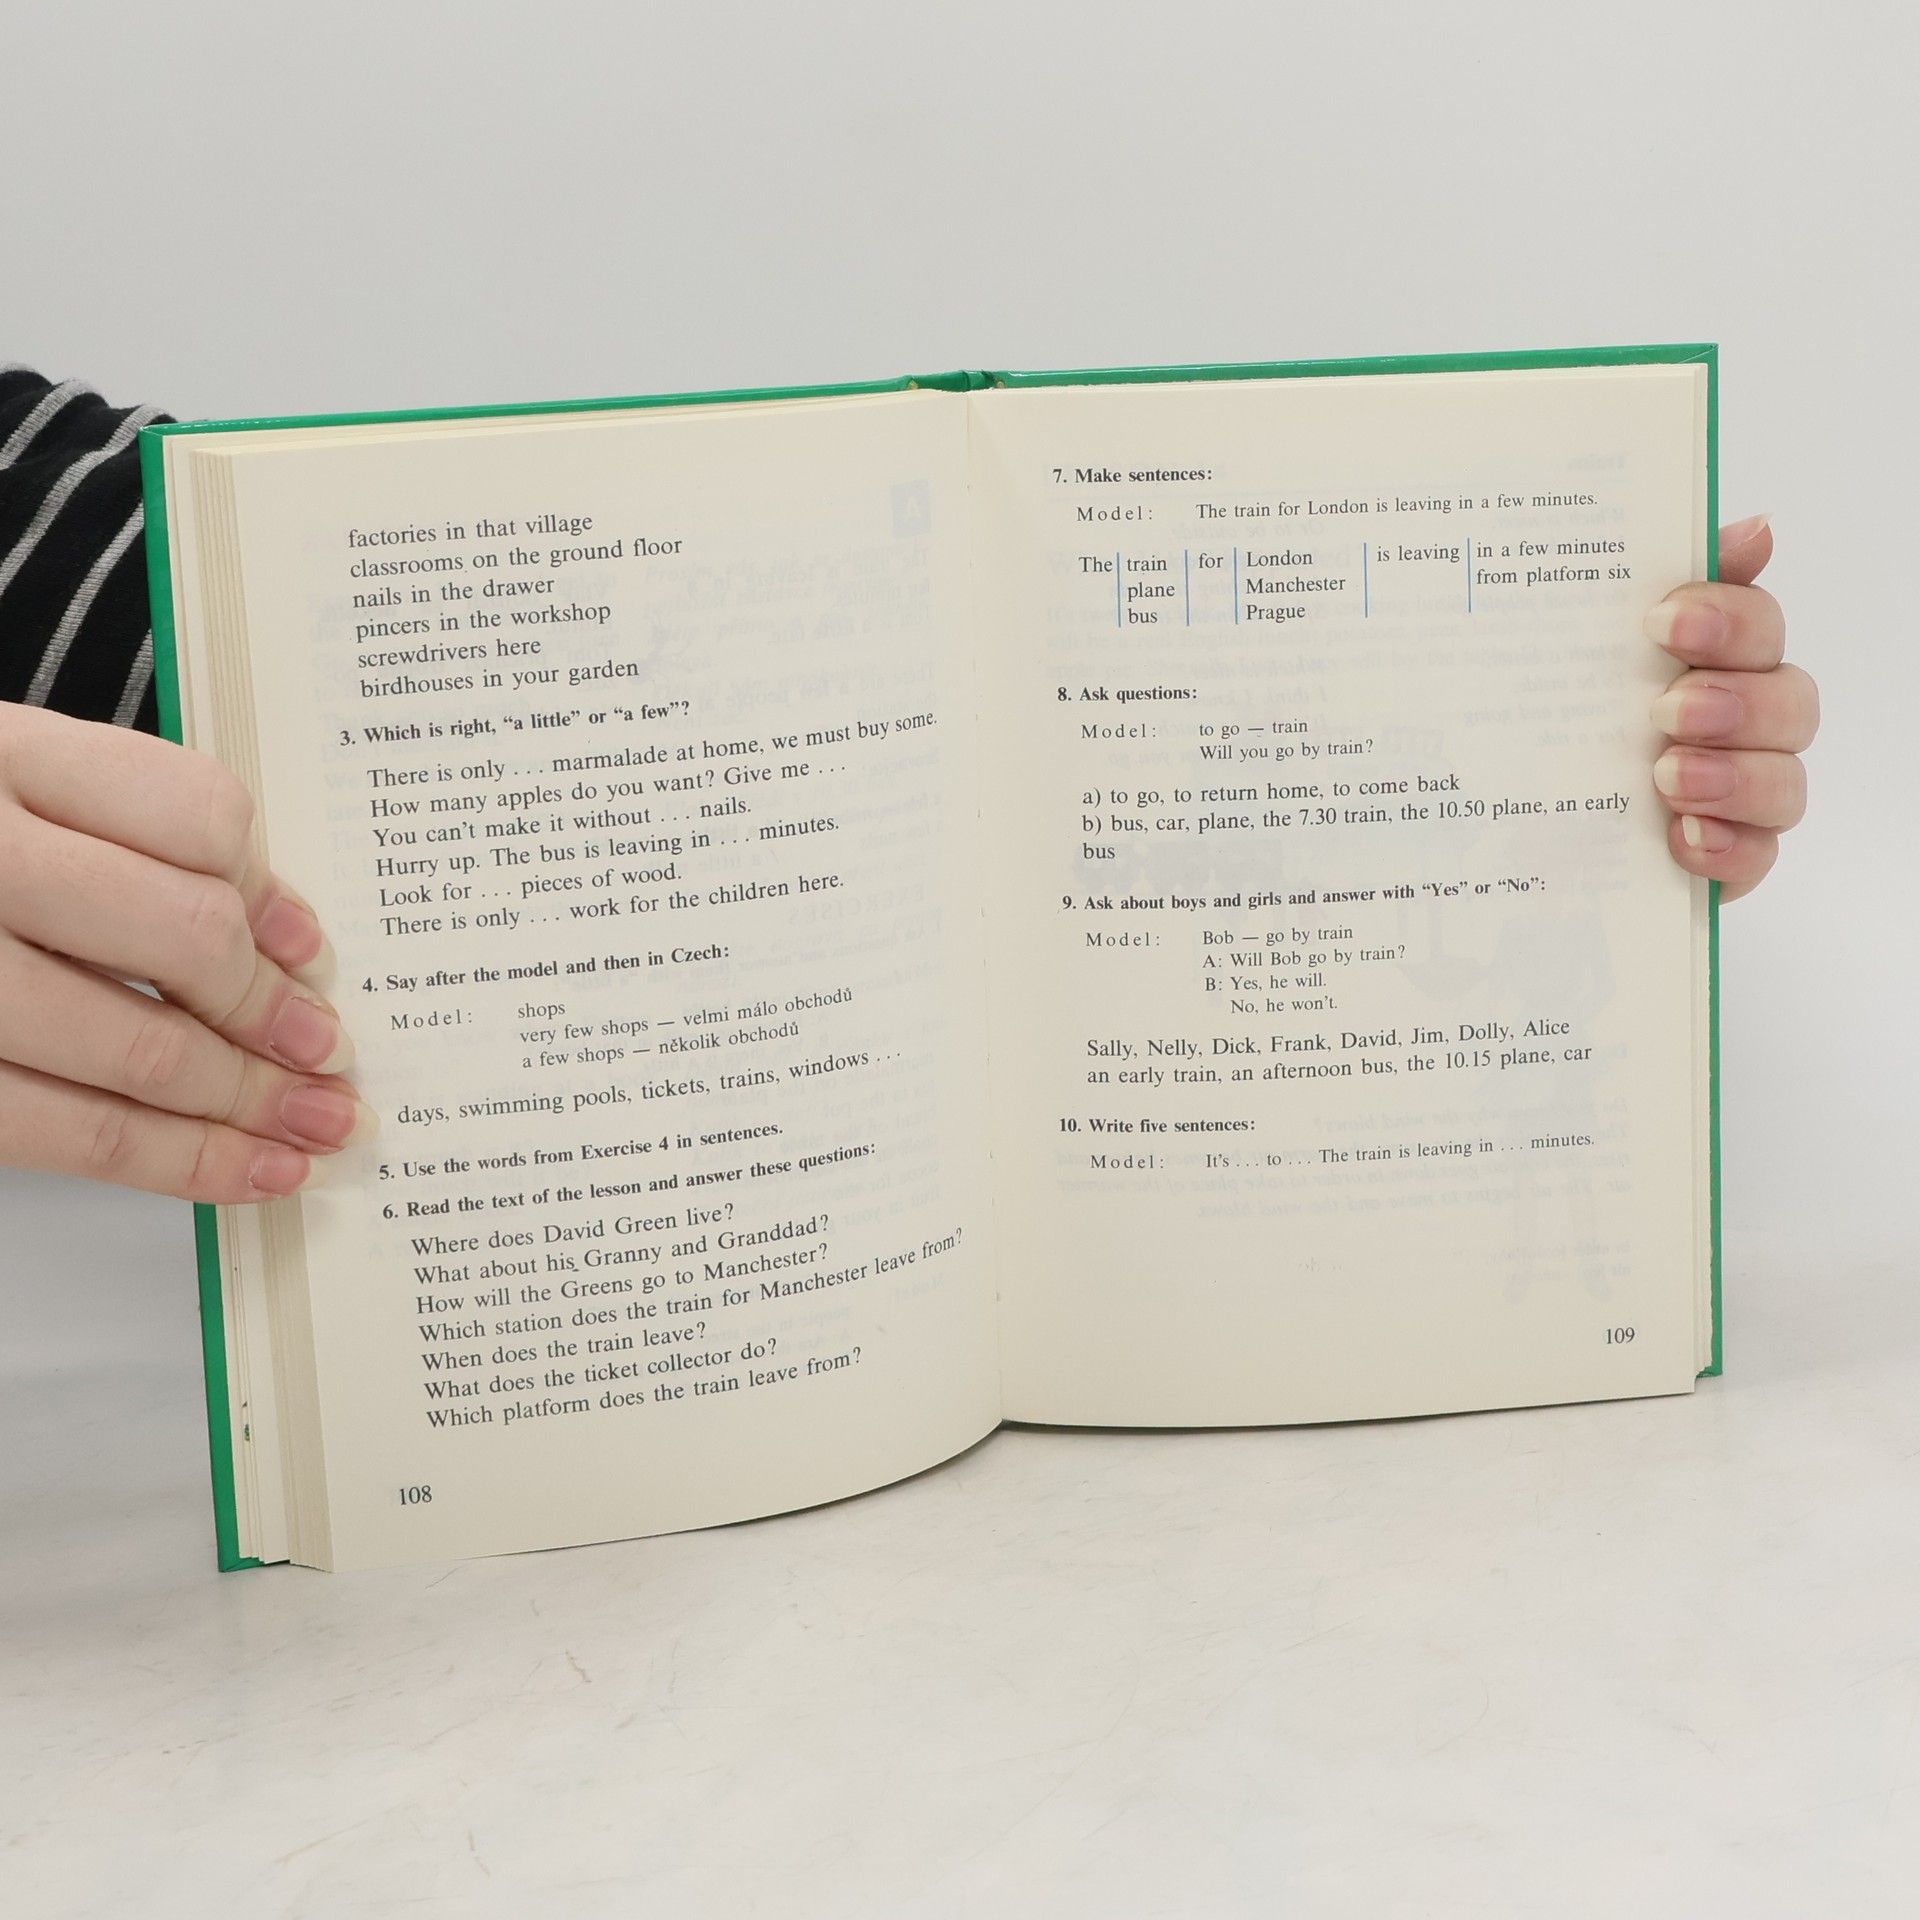 factories in that village
classrooms on the ground floor
nails in the drawer
pincers in the workshop
screwdrivers here
birdhouses in your garden
3. Which is right, “a little” or “a few”?
There is only . . . marmalade at home, we must buy some.
How many apples do you want? Give me . . .
You can’t make it without . . . nails.
Hurry up. The bus is leaving in . . . minutes.
Look for . . . pieces of wood.
There is only . . . work for the children here.
4. Say after the model and then in Czech:
Model: shops
very few shops — velmi málo obchodů
a few shops — několik obchodů
days, swimming pools, tickets, trains, windows . . .
5. Use the words from Exercise 4 in sentences.
6. Read the text of the lesson and answer these questions:
Where does David Green live?
What about his Granny and Granddad?
How will the Greens go to Manchester?
Which station does the train for Manchester leave from?
When does the train leave?
What does the ticket collector do?
Which platform does the train leave from?
108
7. Make sentences:
Model: The train for London is leaving in a few minutes.
The train for London is leaving in a few minutes
plane Manchester from platform six
bus Prague
8. Ask questions:
Model: to go — train
Will you go by train?
a) to go, to return home, to come back
b) bus, car, plane, the 7.30 train, the 10.50 plane, an early
bus
9. Ask about boys and girls and answer with “Yes” or “No”:
Model: Bob — go by train
A: Will Bob go by train?
B: Yes, he will.
No, he won’t.
Sally, Nelly, Dick, Frank, David, Jim, Dolly, Alice
an early train, an afternoon bus, the 10.15 plane, car
10. Write five sentences:
Model: It’s . . . to . . . The train is leaving in . . . minutes.
109